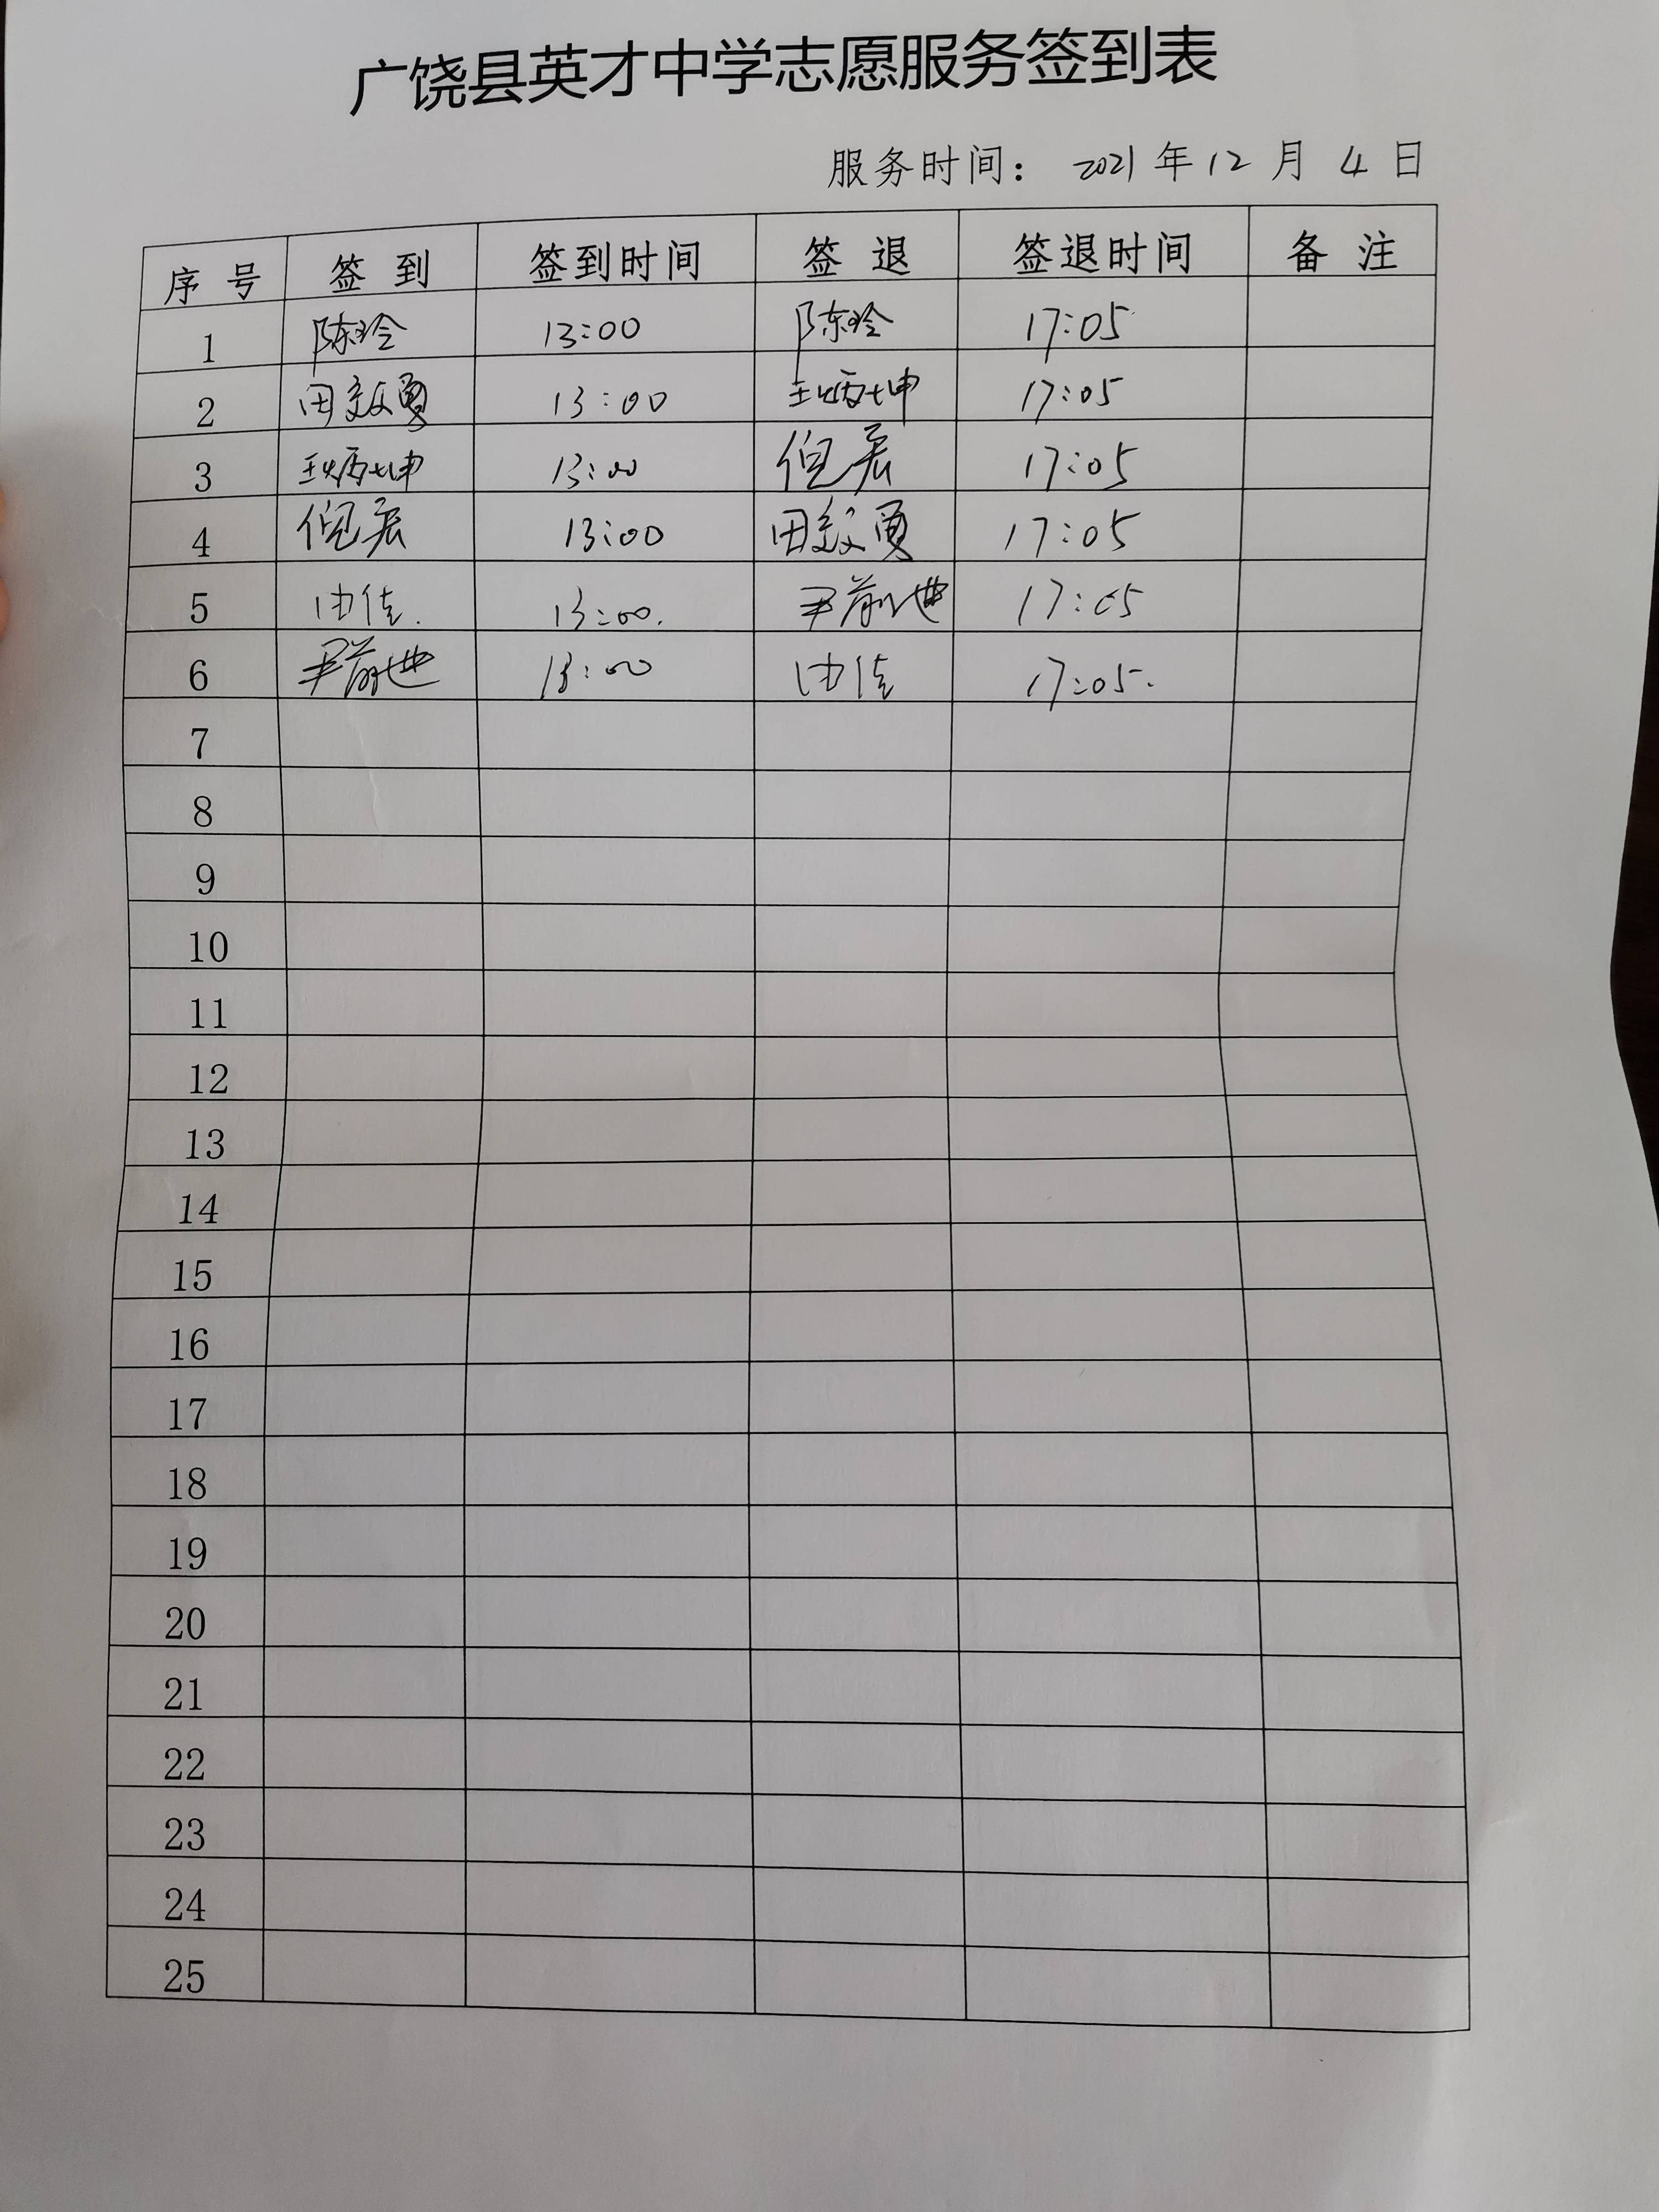 广饶县英才中学志愿服务签到表
服务时间： 2021 年 12 月 4 日
序号 签到 签到时间 签退 签退时间 备注
1 陈玲 13:00 陈玲 17:05
2 田毅勇 13:00 王炳坤 17:05
3 王炳坤 13:00 倪宏 17:05
4 倪宏 13:00 田毅勇 17:05
5 由佳 13:00. 17:05
6 13:00 由佳 17:05.
7
8
9
10
11
12
13
14
15
16
17
18
19
20
21
22
23
24
25